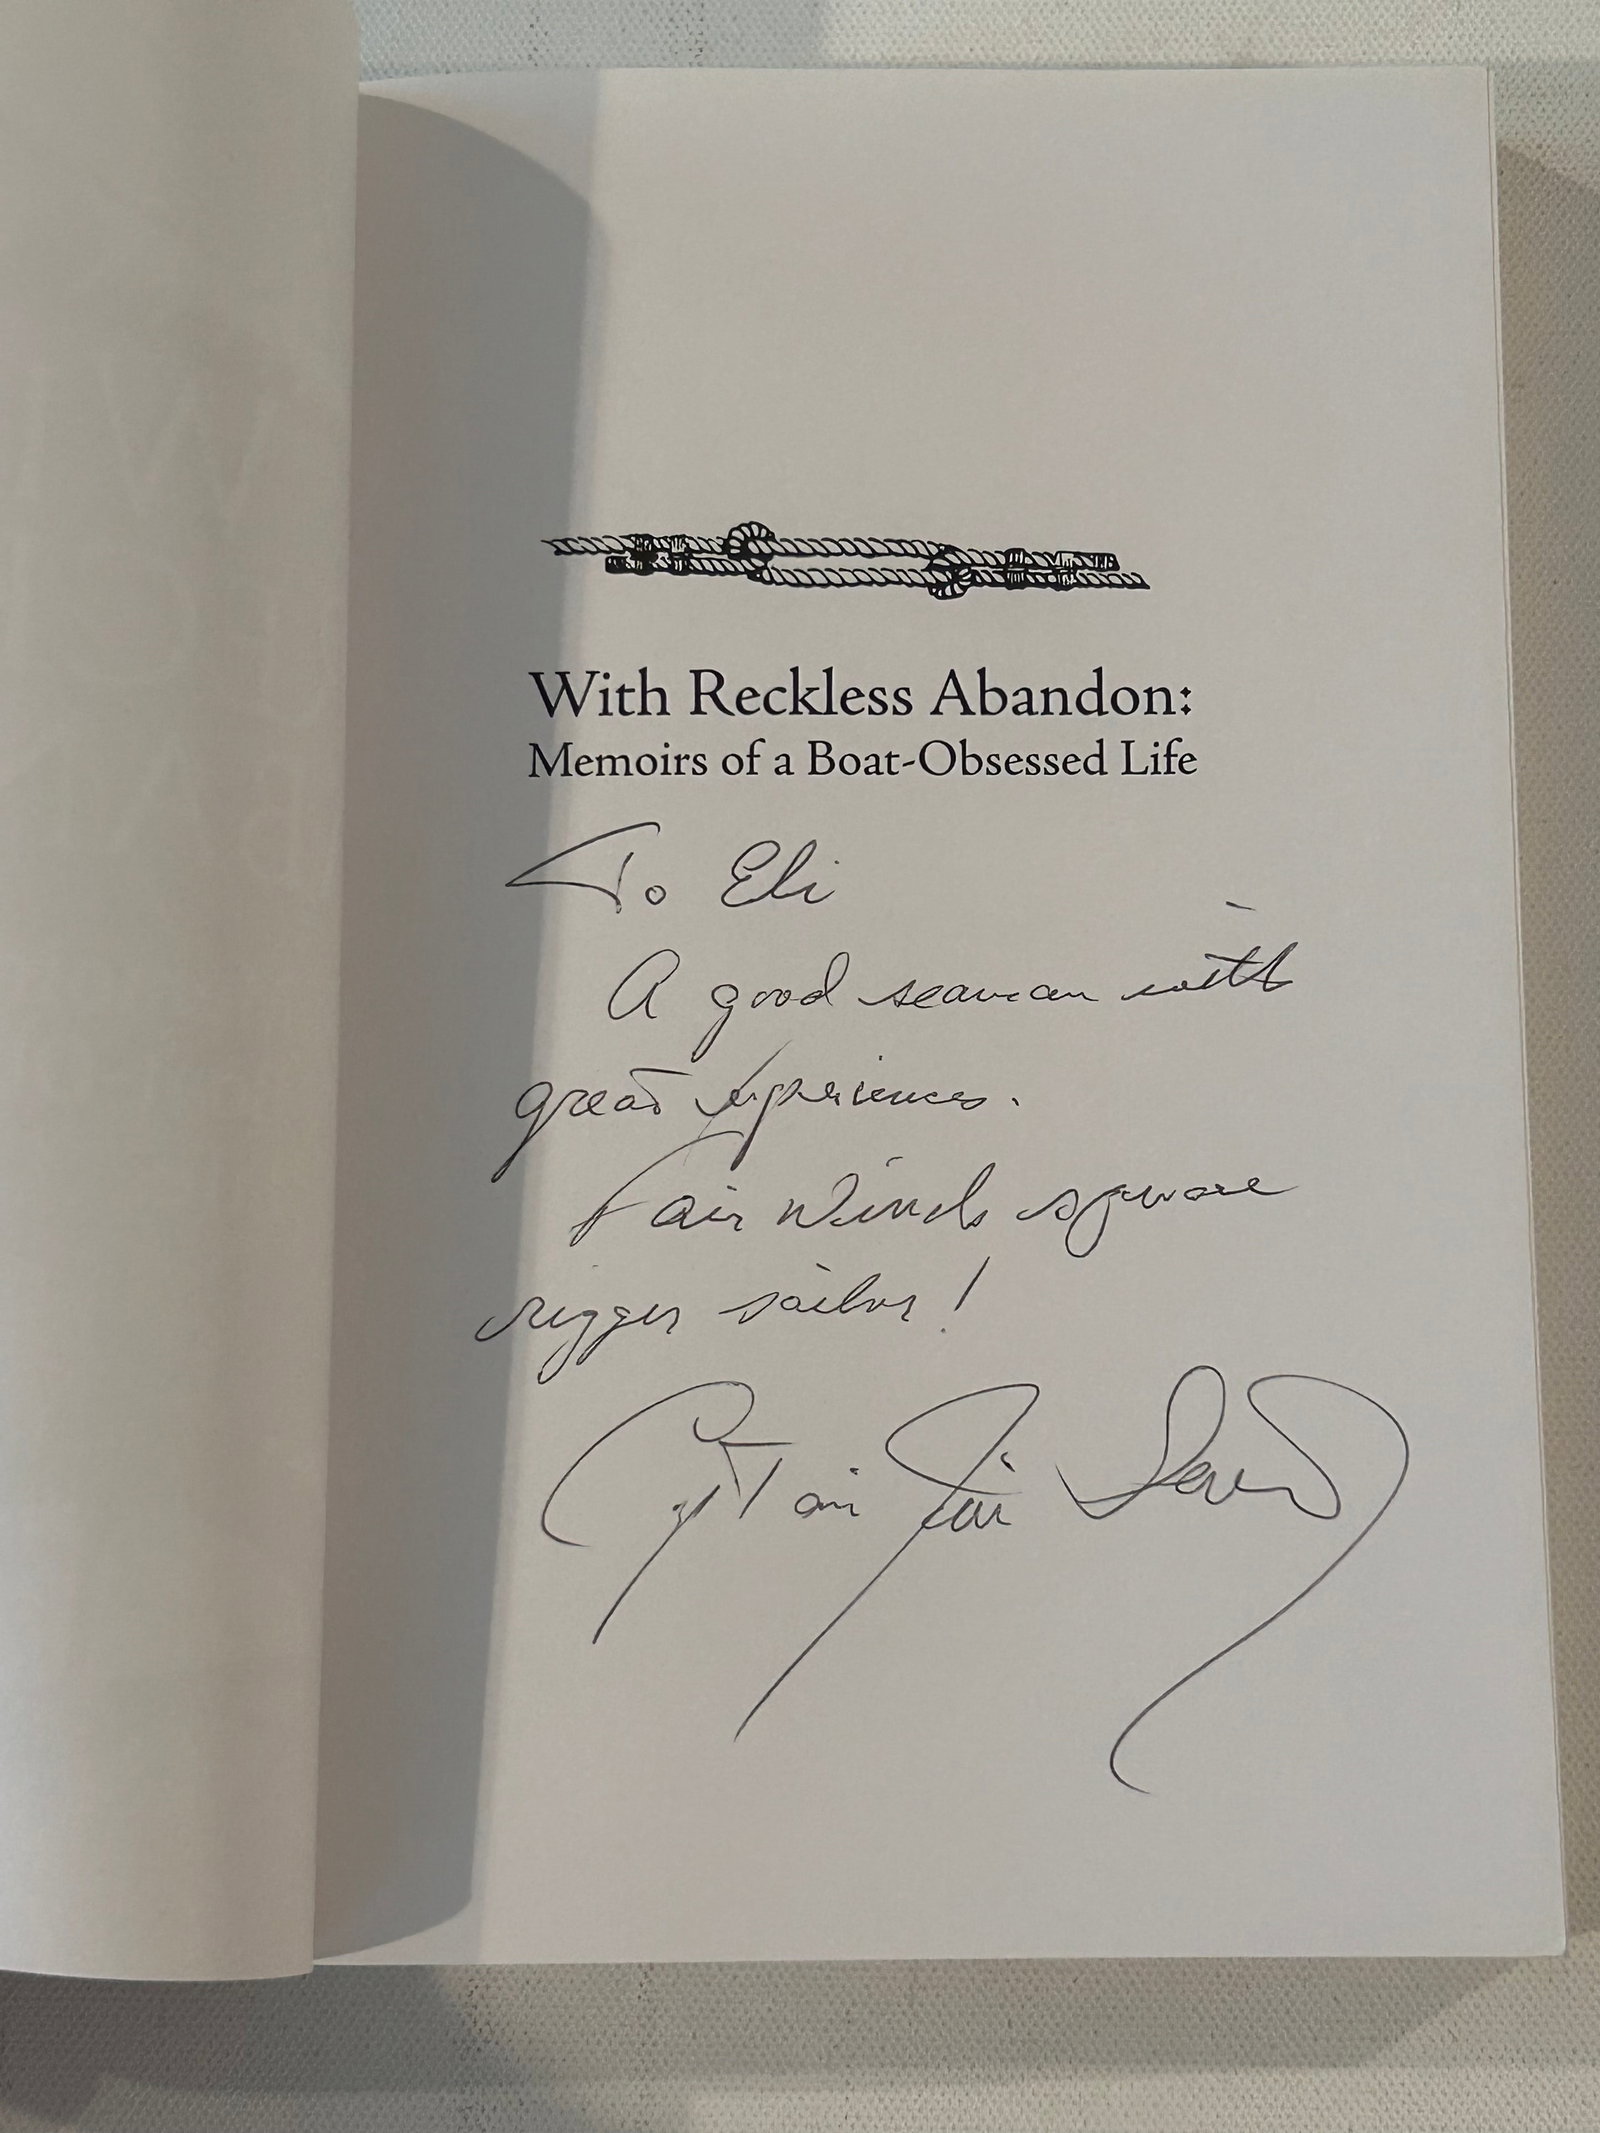 With Reckless Abandon:
Memoirs of a Boat-Obsessed Life
To Eli
A good seaman with
great experiences.
Fair Winds square
rigger sailor!
Captain Jim Sharp